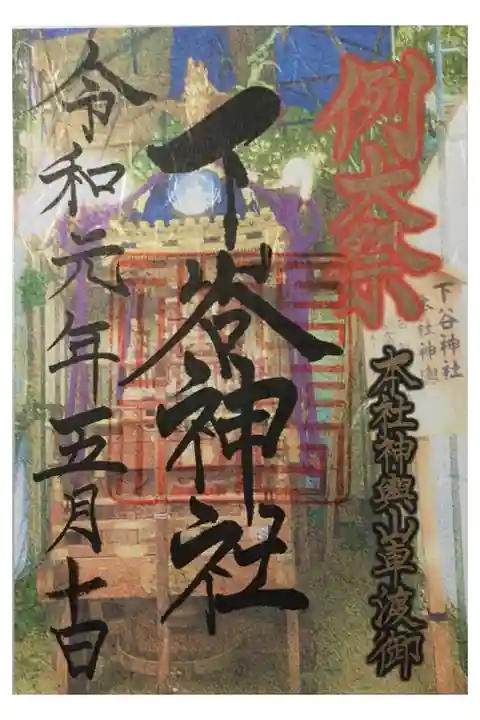 例大祭
本社神輿山車渡御
下谷神社
本社神輿
下谷神社
令和元年五月十日